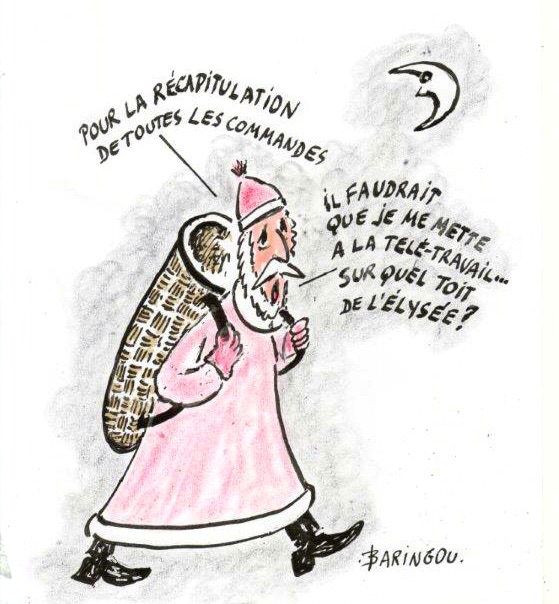 POUR LA RÉCAPITULATION
DE TOUTES LES COMMANDES
iL FAUDRAIT
QUE JE ME METTE
A LA TELÉ-TRAVAIL...
SUR QUEL TOIT
DE L'ÉLYSÉE?
BARINGOU.